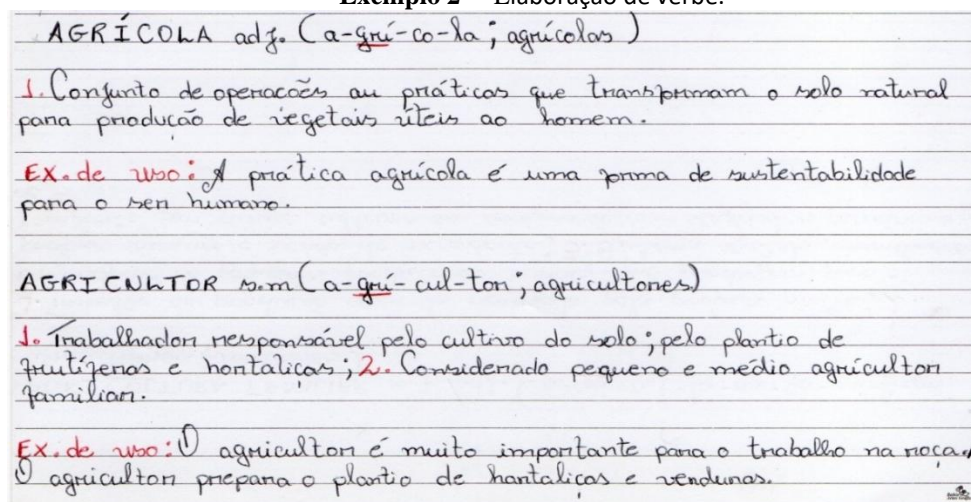 Exemplo 2 – Elaboração de verbe.
AGRÍCOLA adj. (a-grí-co-la; agrícolas)
1. Conjunto de operacoẽs ou práticas que transformam o solo natural
para producão de vegetais úteis ao homem.
Ex. de uso: A prática agrícola é uma forma de sustentabilidade
para o ser humano.
AGRICULTOR s.m (a-grí-cul-tor; agricultores)
1. Trabalhador responsável pelo cultivo do solo; pelo plantio de
frutíferas e hortaliças; 2. Considerado pequeno e médio agricultor
familiar.
Ex. de uso: O agricultor é muito importante para o trabalho na roça.
O agricultor prepara o plantio de hortaliças e verduras.